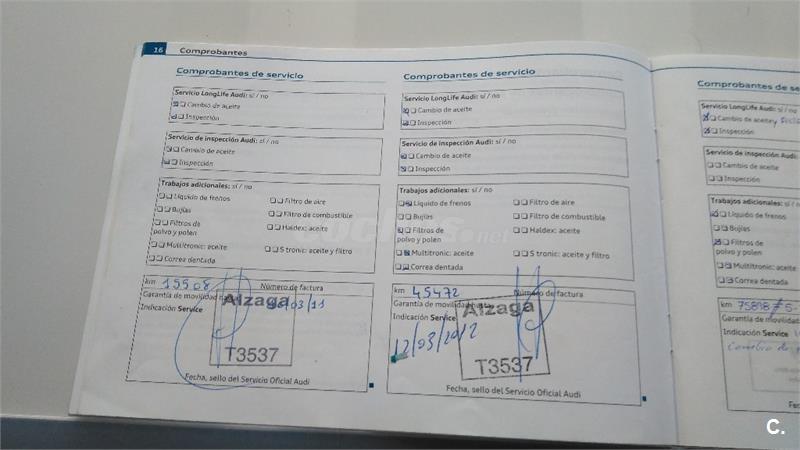 16 Comprobantes
Comprobantes de servicio
Servicio LongLife Audi: sí / no
Cambio de aceite
Inspección
Servicio de inspección Audi: sí / no
Cambio de aceite
Inspección
Trabajos adicionales: sí / no
Líquido de frenos
Filtro de aire
Bujías
Filtro de combustible
Filtros de
polvo y polen
Haldex: aceite
Multitronic: aceite
S tronic: aceite y filtro
Correa dentada
km 15508 Número de factura
Garantía de movilidad
/03/11
Indicación Service
Alzaga
T3537
Fecha, sello del Servicio Oficial Audi
Comprobantes de servicio
Servicio LongLife Audi: sí / no
Cambio de aceite
Inspección
Servicio de inspección Audi: sí / no
Cambio de aceite
Inspección
Trabajos adicionales: sí / no
Líquido de frenos
Filtro de aire
Bujías
Filtro de combustible
Filtros de
polvo y polen
Haldex: aceite
Multitronic: aceite
S tronic: aceite y filtro
Correa dentada
km 45472 Número de factura
Garantía de movilidad
Indicación Service
12/03/2012
Alzaga
T3537
Fecha, sello del Servicio Oficial Audi
Comprobantes de se
Servicio LongLife Audi: sí / no
Cambio de aceite y
Inspección
Servicio de inspección Audi:
Cambio de aceite
Inspección
Trabajos adicionales: sí / n
Líquido de frenos
Bujías
Filtros de
polvo y polen
Multitronic: aceite
Correa dentada
km 75898
Garantía de movilidad
Indicación Service
Cambio de
Fecha, sello del Servic
coches.net
C.